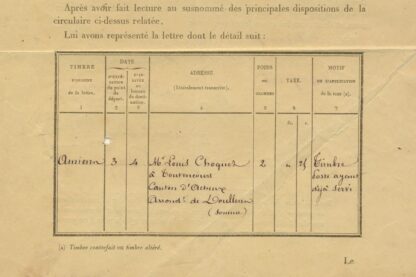 Après avoir fait lecture au susnommé des principales dispositions de la
circulaire ci-dessus relatée,
Lui avons représenté la lettre dont le détail suit :
TIMBRE
D'ORIGINE
de la lettre.
1
DATE
D'EXPÉDITION
du point de
départ.
2
3
ADRESSE
(Littéralement transcrite).
4
POIDS
EN
GRAMMES
5
TAXE.
6
MOTIF
DE L'APPLICATION
de la taxe (a).
7
fr. c.
Amiens 3 4 Mr Louis Choquet 2 " 25 Timbre
à Toutencourt
Canton d'Acheux
Arrondt de Doullens
(Somme)
poste ayant
déjà servi
(a) Timbre contrefait ou timbre altéré.
Le